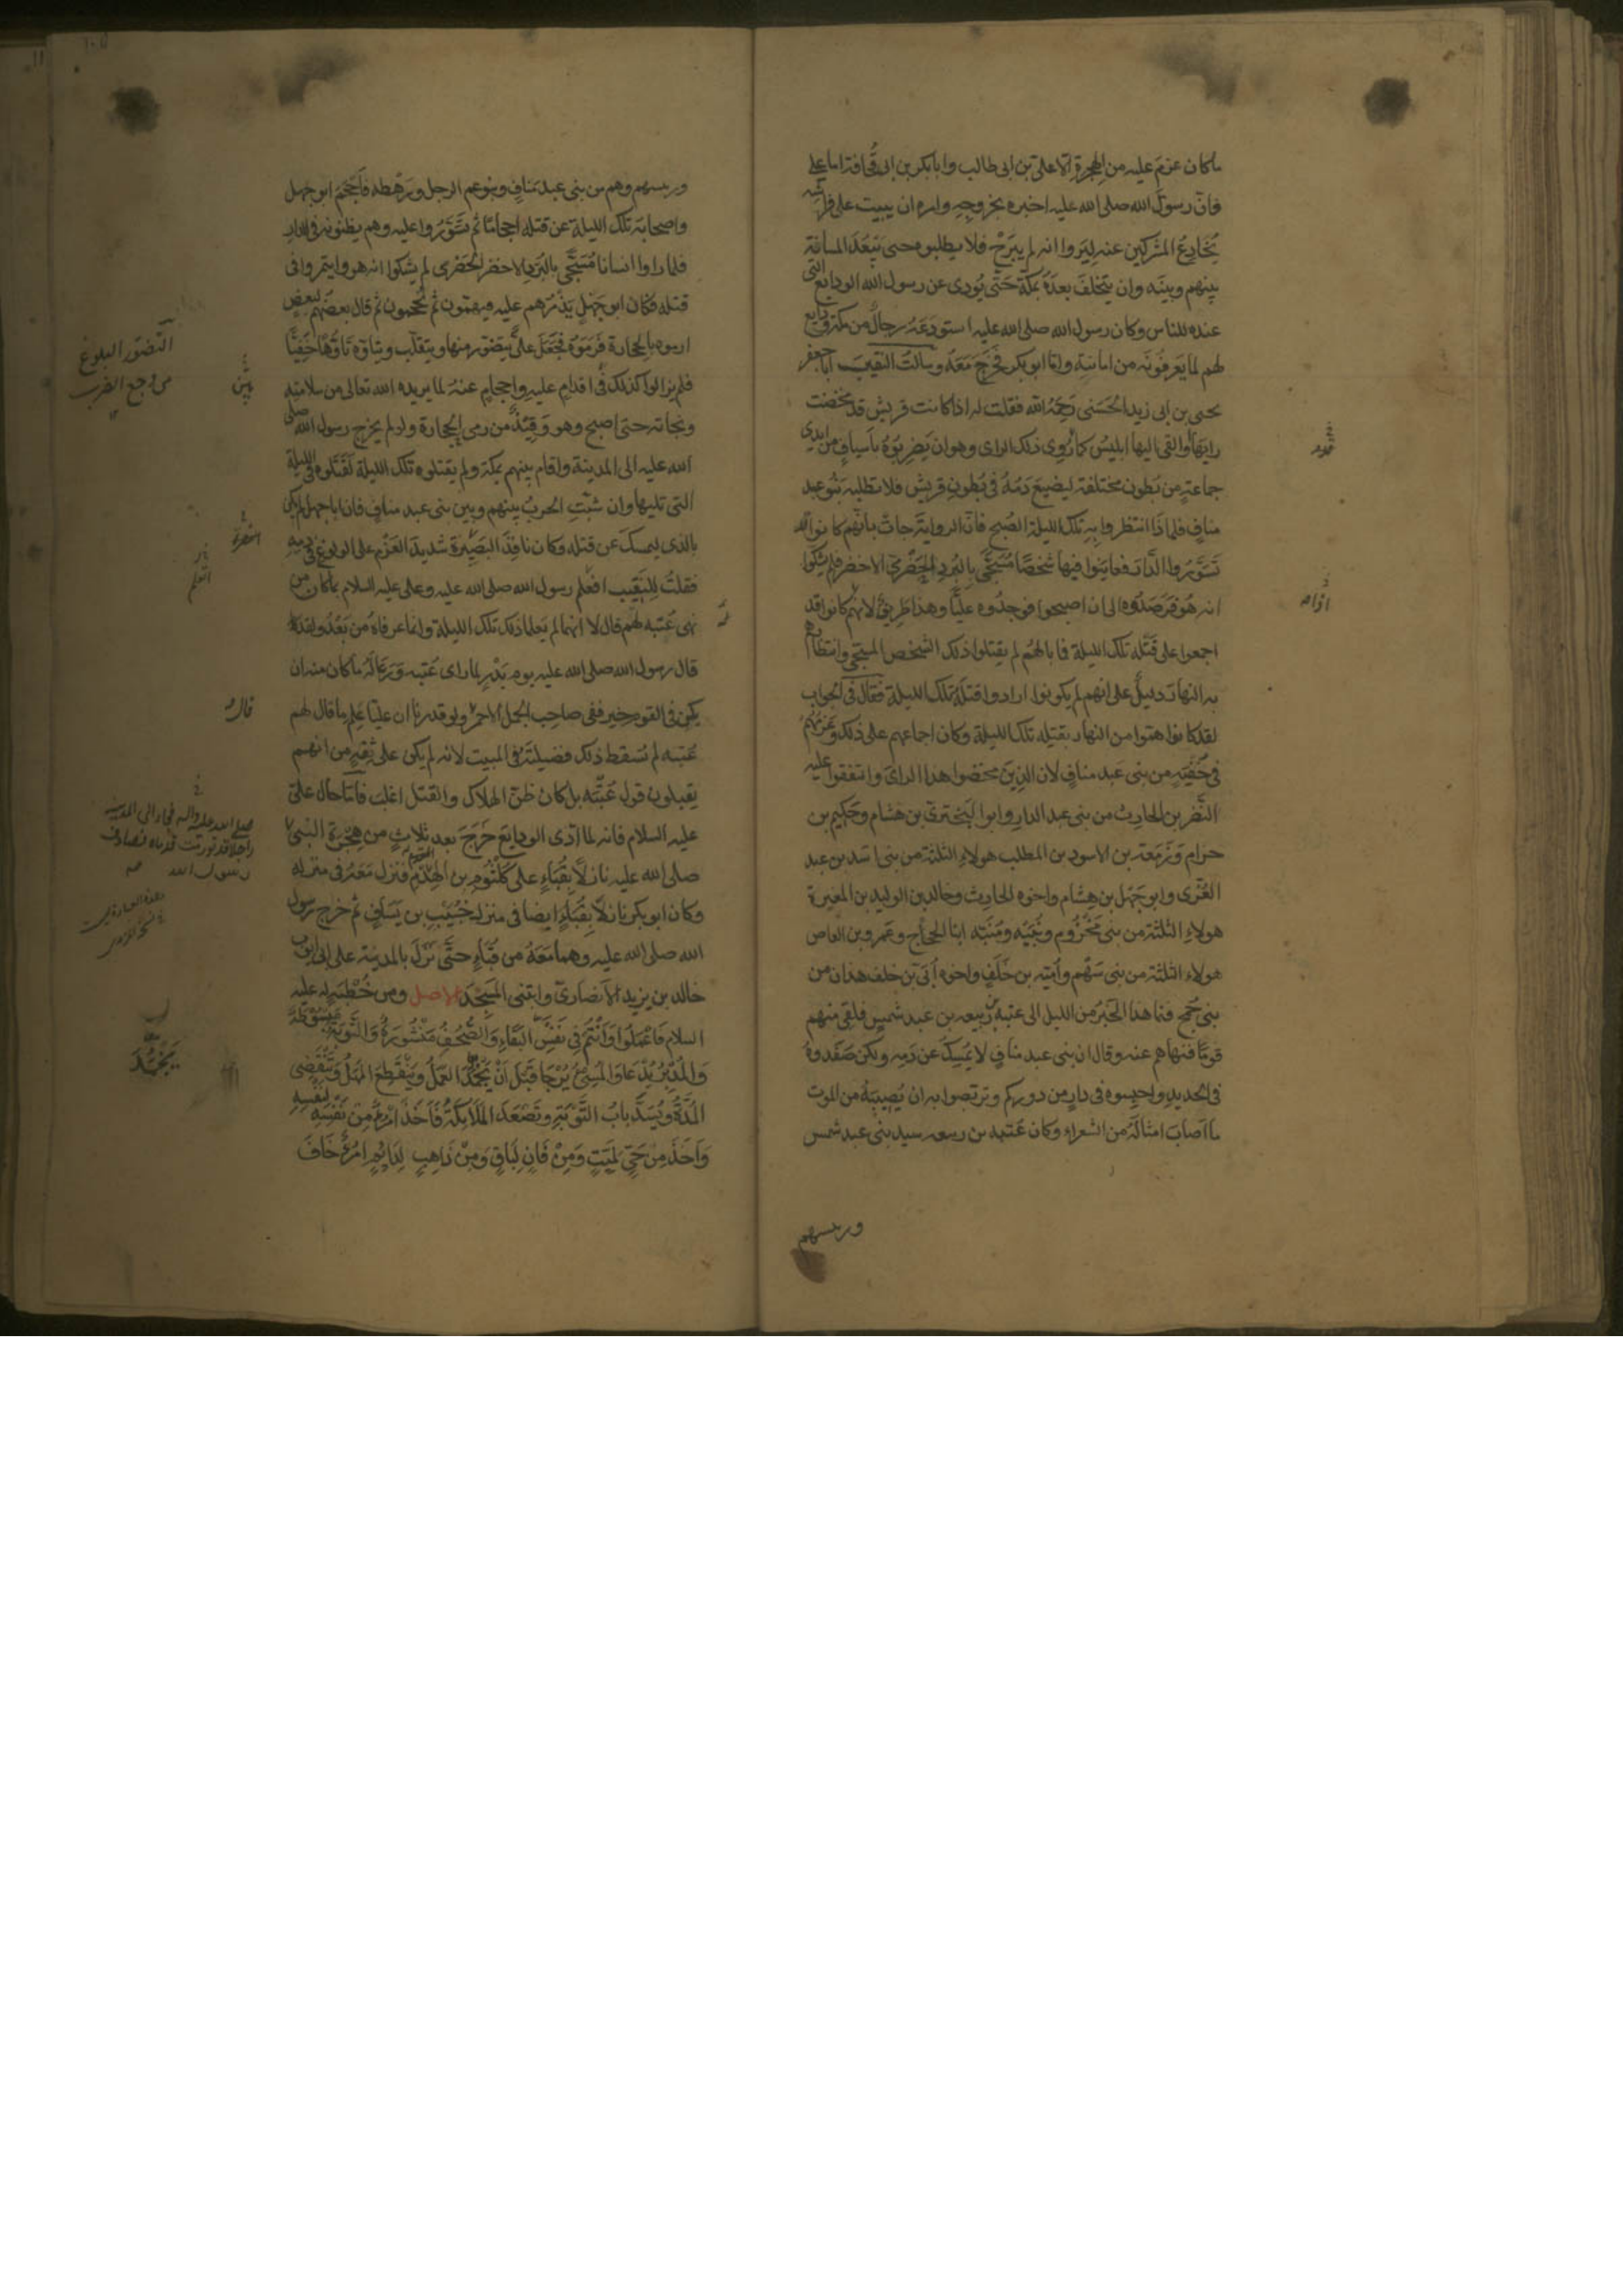 ما كان عزم عليه من الهجرة الا على بن ابى طالب وابا بكر بن ابى قحافة اما على
فان رسول الله صلى الله عليه اخبره بخروجه وامره ان يبيت على فراشه
يخادع المشركين عنه ليروا انه لم يبرح فلا يطلبوه حتى تبعد المسافة
بينهم وبينه وان يتخلف بعده بمكة حتى يودى عن رسول الله الودايع التى
عنده للناس وكان رسول الله صلى الله عليه استودعه رجال من مكة ودايع
لهم لما يعرفونه من امانته واما ابو بكر فخرج معه وسالت النقيب ابا جعفر
يحيى بن ابى زيد الحسنى رحمه الله فقلت له اذا كانت قريش قد محضت
رايها والقى اليها ابليس كما روى ذلك الراى وهو ان يضربوه باسياف من ايدى
جماعة من بطون مختلفة ليضيع دمه فى بطون قريش فلا تطلبه بنو عبد
مناف فلماذا انتظروا به تلك الليلة الصبح فان الرواية جات بانهم كانوا
تسوروا الدار فعاينوا فيها شخصا مسجى بالبرد الحضرمى الاخضر فلم يشكوا
انه هو فرصدوه الى ان اصبحوا فوجدوه عليا وهذا طريق لانهم كانوا قد
اجمعوا على قتله تلك الليلة فما بالهم لم يقتلوا ذلك الشخص المسجى وانتظارهم
به النهار دليل على انهم لم يكونوا ارادوا قتله تلك الليلة فقال فى الجواب
لقد كانوا هموا من النهار بقتله تلك الليلة وكان اجماعهم على ذلك وعزمهم
فى خفية من بنى عبد مناف لان الذين محضوا هذا الراى واتفقوا عليه
النضر بن الحارث من بنى عبد الدار وابو البخترى بن هشام وحكيم بن
حزام وزمعة بن الاسود بن المطلب هولاء الثلثة من بنى اسد بن عبد
العزى وابو جهل بن هشام واخوه الحارث وخالد بن الوليد بن المغيرة
هولاء الثلثة من بنى مخزوم ونبيه ومنبه ابنا الحجاج وعمرو بن العاص
هولاء الثلثة من بنى سهم وامية بن خلف واخوه ابى بن خلف هذان من
بنى جمح فنما هذا الخبر من الليل الى عتبة بن ربيعه بن عبد شمس فلقى منهم
قوما فنهاهم عنه وقال ان بنى عبد مناف لا تمسك عن دمه ولكن صفدوه
فى الحديد واحبسوه فى دار من دوركم وتربصوا به ان يصيبه من الموت
ما اصاب امثاله من الشعراء وكان عتبه بن ربيعه سيد بنى عبد شمس
وريسهم
وريسهم وهم من بنى عبد مناف وبنو عم الرجل ورهطه فاحجم ابو جهل
واصحابه تلك الليلة عن قتله احجاما ثم تسوروا عليه وهم يظنونه فى الدار
فلما راوا انسانا مسجى بالبرد الاخضر الحضرمى لم يشكوا انه هو وايتمروا فى
قتله فكان ابو جهل يذمرهم عليه فيهمون ثم يحجمون ثم قال بعضهم لبعض
ارموه بالحجارة فرموه فجعل على يتضور منها ويتقلب ويتاوه تاوها خفيا
فلم يزالوا كذلك فى اقدام عليه واحجام عنه لما يريده الله تعالى من سلامته
ونجاته حتى اصبح وهو وقيذ من رمى الحجارة ولو لم يخرج رسول الله صلى
الله عليه الى المدينة واقام بينهم بمكة ولم يقتلوه تلك الليلة لقتلوه فى الليلة
التى تليها وان شبت الحرب بينهم وبين بنى عبد مناف فان ابا جهل لم يكن
بالذى ليمسك عن قتله وكان نافذ البصيرة شديد العزم على الولوغ فى دمه
فقلت للنقيب افعلم رسول الله صلى الله عليه وعلى عليه السلام بما كان من
نهى عتبه لهم قال لا انهما لم يعلما ذلك تلك الليلة وانما عرفاه من بعد ولقد
قال رسول الله صلى الله عليه يوم بدر لما راى عتبه وما كان منه ان
يكن فى القوم خير ففى صاحب الجمل الاحمر ولو قدرنا ان عليا علم ما قال لهم
عتبه لم تسقط ذلك فضيلته فى المبيت لانه لم يكن على ثقة من انهم
يقبلون قول عتبه بل كان ظن الهلاك والقتل اغلب فاما حال على
عليه السلام فانه لما ادى الودايع خرج بعد ثلاث من هجرة النبى
صلى الله عليه نازلا بقباء على كلثوم بن الهدم فنزل معه فى منزله
وكان ابو بكر نازلا بقباء ايضا فى منزل خبيب بن يساف ثم خرج رسول
الله صلى الله عليه وهما معه من قباء حتى نزل بالمدينة على ابى ايوب
خالد بن يزيد الانصارى وابتنى المسجد الاصل ومن خطبة له عليه
السلام فاعملوا وانتم فى نفس البقاء والصحف منشورة والتوبة مبسوطة
والمدبر يدعا والمسئ يرجا قبل ان يخمد العمل وينقطع المهل وتنقضى
المدة ويسد باب التوبة وتصعد الملائكة فاخذ امرؤ من نفسه لنفسه
واخذ من حى لميت ومن فان لباق ومن ذاهب لدائم امرؤ خاف
التضور البلوغ
من وجع الضرب
قال
صلى الله عليه واله فجاء الى المدينة
راجلا قد تورمت قدماه فصادف
رسول الله
يخمد